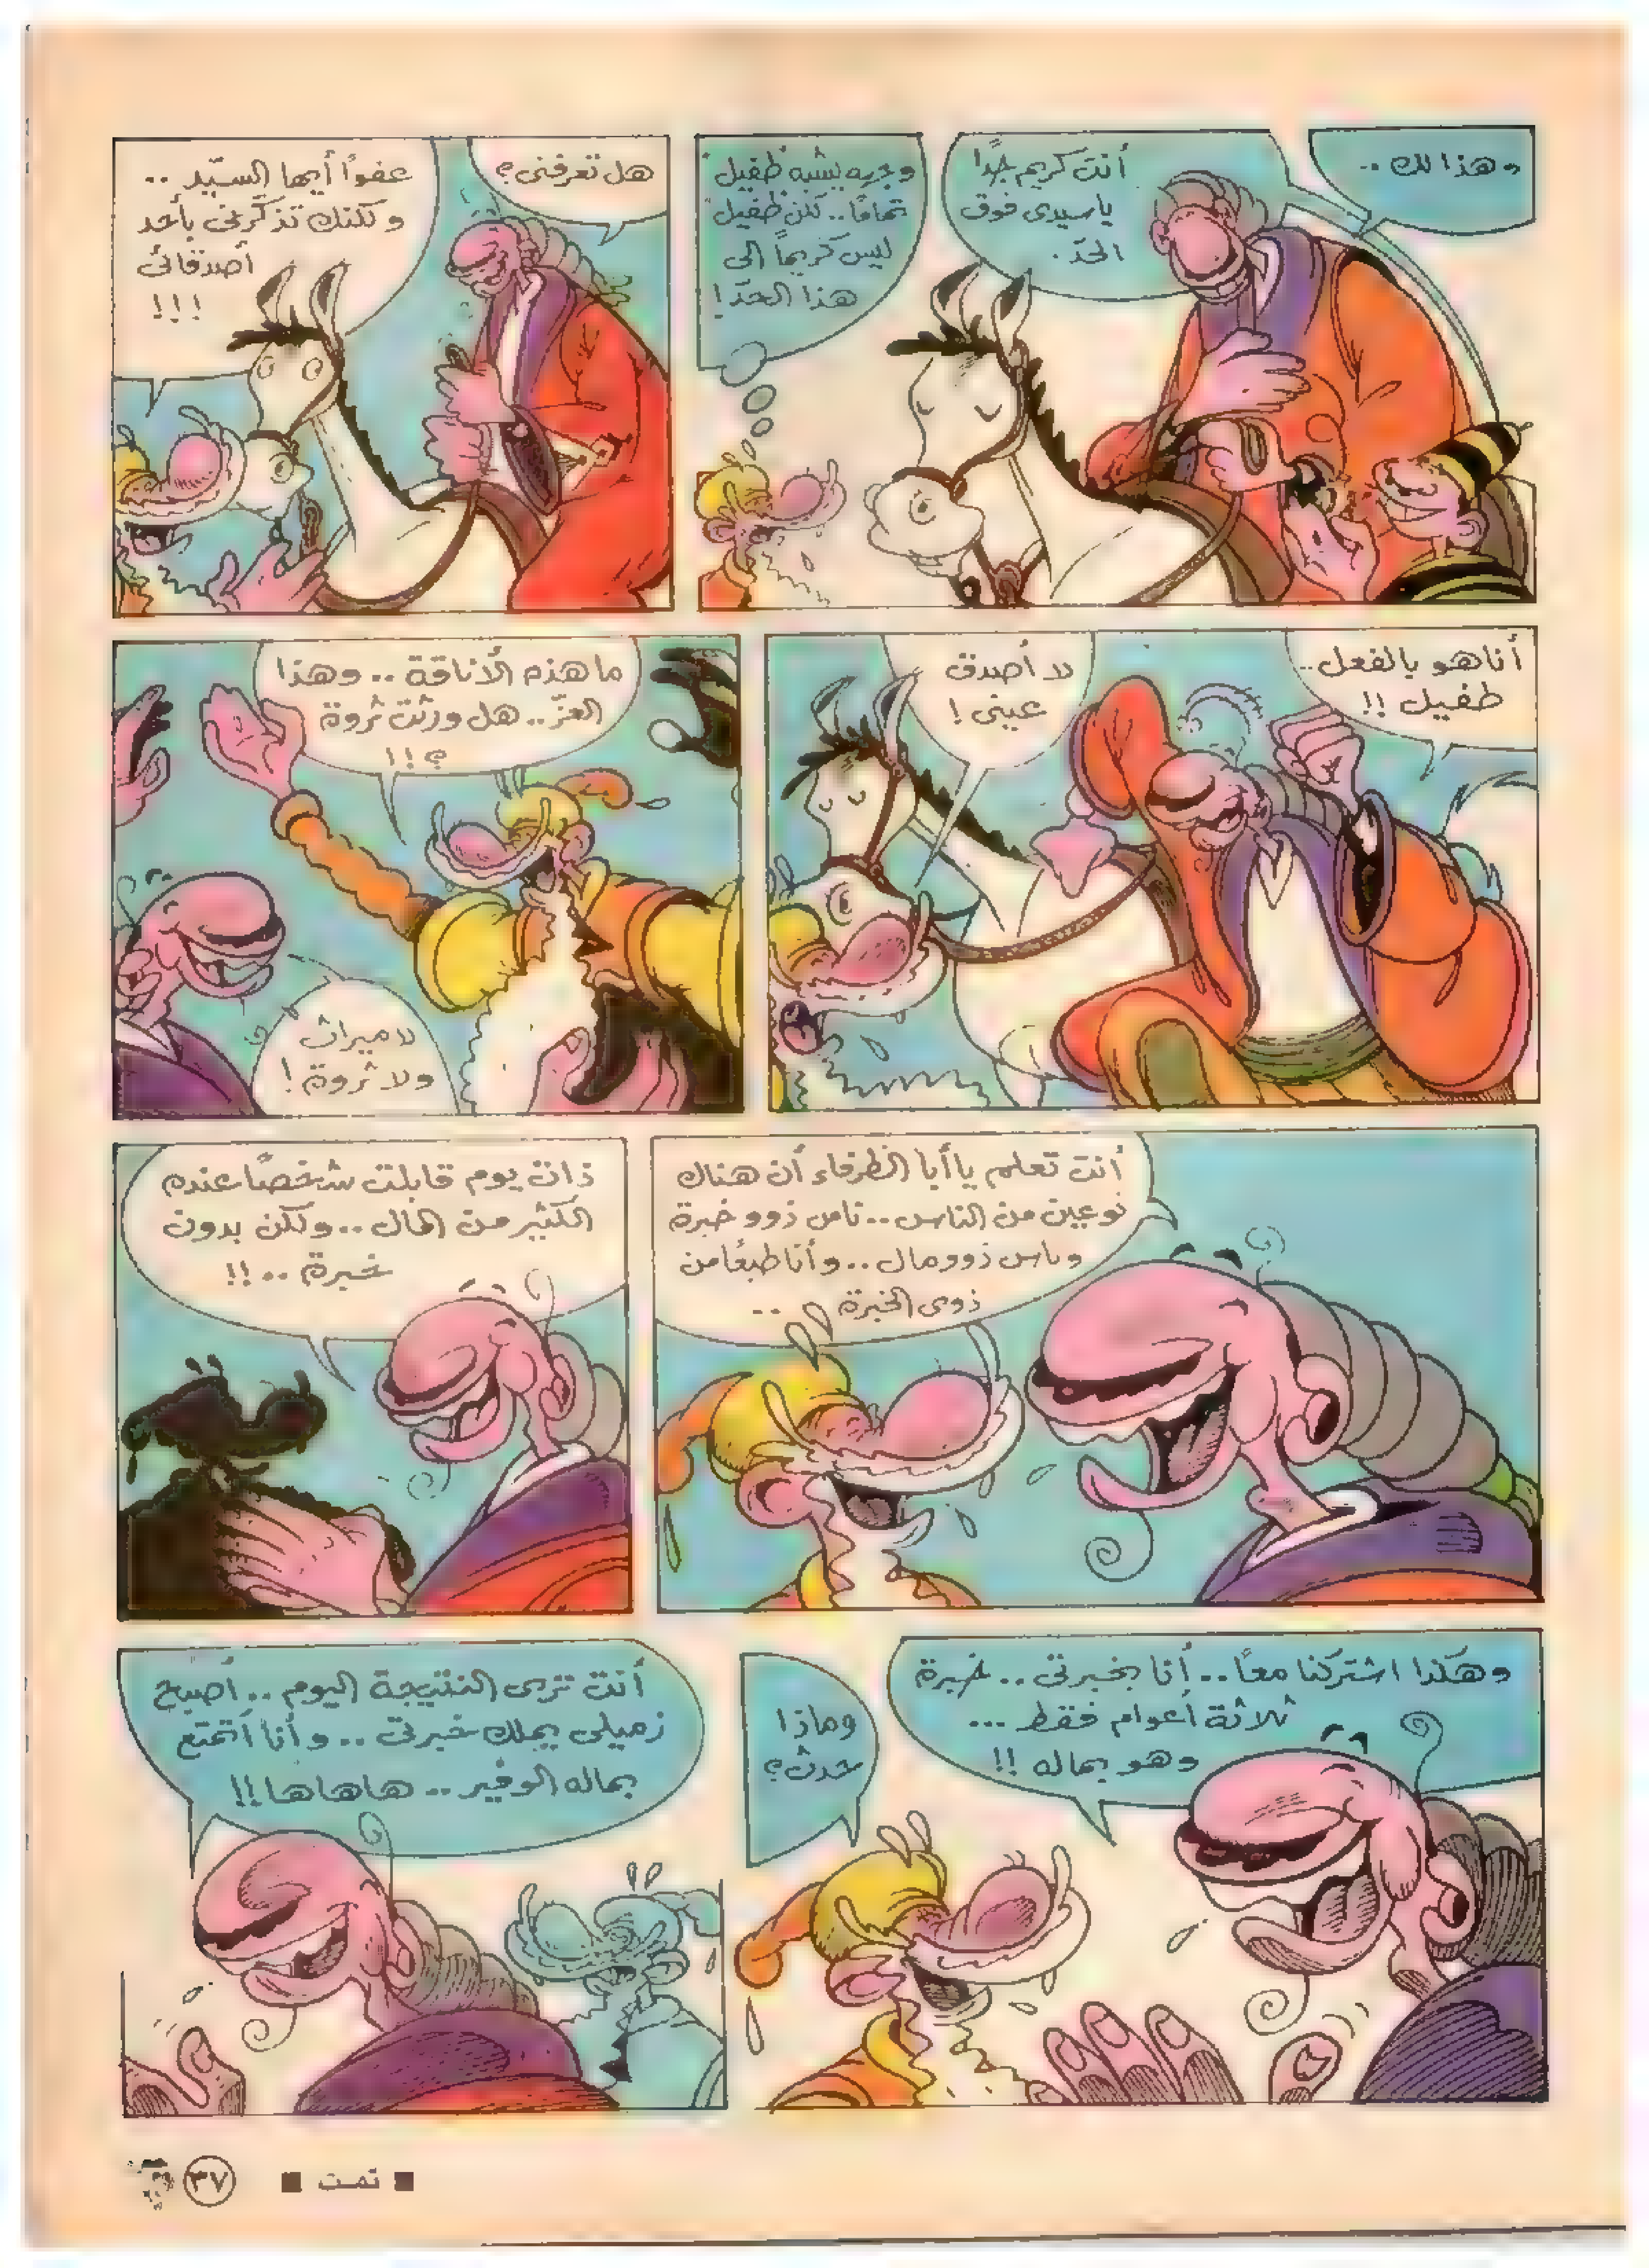 وهذا لك ..
أنت كريم جدًا
ياسيدى فوق
الحدّ .
وجهه يشبه "طفيل"
تمامًا .. لكن "طفيل"
ليس كريمًا إلى
هذا الحدّ !
هل تعرفنى ؟
عفوًا أيها السيّد ..
ولكنك تذكّرنى بأحد
أصدقائى
!!!
أنا هو بالفعل ..
طفيل !!
لا أصدق
عينى !
ما هذه الأناقة .. وهذا
العزّ .. هل ورثت ثروة
؟!!
لا ميراث
ولا ثروة !
أنت تعلم يا أبا الظرفاء أن هناك
نوعين من الناس .. ناس ذوو خبرة
وناس ذوو مال .. وأنا طبعًا من
ذوى الخبرة ..
ذات يوم قابلت شخصًا عنده
الكثير من المال .. ولكن بدون
خبرة ..!!
وهكذا اشتركنا معًا .. أنا بخبرتى .. خبرة
ثلاثة أعوام فقط ...
وهو بماله !!
وماذا
حدث ؟
أنت ترى النتيجة اليوم .. أصبح
زميلى يملك خبرتى .. وأنا أتمتع
بماله الوفير .. هاهاها !!
■ تمت ■
٣٧